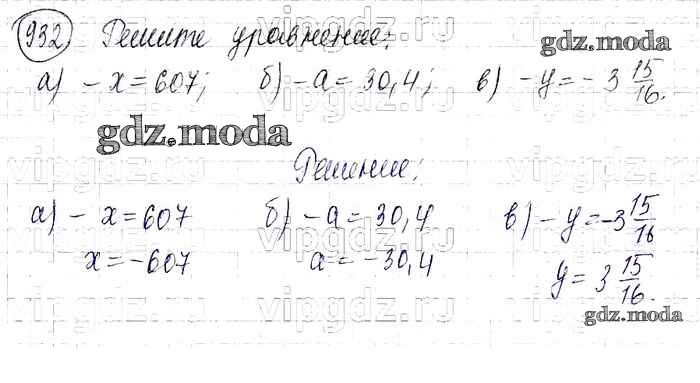 932 Решите уравнение:
gdz.moda
а) - x = 607; б) - a = 30,4; в) - y = - 3 15/16.
gdz.moda
Решение:
а) - x = 607 б) - a = 30,4 в) - y = -3 15/16
x = -607 a = -30,4 y = 3 15/16.
gdz.moda
vipgdz.ru